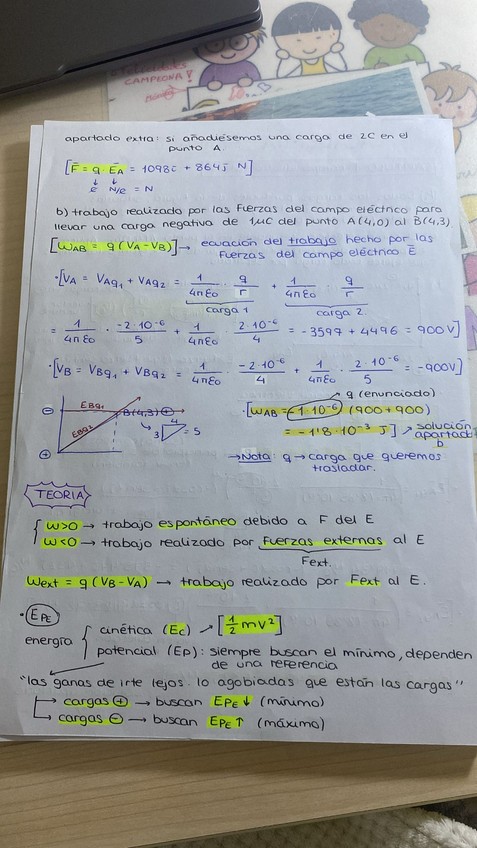 CAMPEONA!
apartado extra: si añadiésemos una carga de 2C en el
punto A.
[F̄ = q · ĒA = 1098i + 864j N]
↓ ↓
c N/c = N
b) trabajo realizado por las fuerzas del campo eléctrico para
llevar una carga negativa de 1μC del punto A(4,0) al B(4,3).
[WAB = q (VA - VB)] → ecuación del trabajo hecho por las
fuerzas del campo eléctrico E̅
· [VA = VAq1 + VAq2 = 1/4πε0 · q/r + 1/4πε0 · q/r
carga 1 carga 2
= 1/4πε0 · -2·10⁻⁶/5 + 1/4πε0 · 2·10⁻⁶/4 = -3597 + 4496 = 900V]
· [VB = VBq1 + VBq2 = 1/4πε0 · -2·10⁻⁶/4 + 1/4πε0 · 2·10⁻⁶/5 = -900V]
q (enunciado)
⊖ EBq1 B(4,3) ⊕
EBq2 3 4 = 5
⊕
· [WAB = (-1·10⁻⁶) (900 + 900)
= -1'8·10⁻³ J] → solución
apartado
b
→ Nota q → carga que queremos
trasladar.
TEORIA
{ W>0 → trabajo espontáneo debido a F del E
W<0 → trabajo realizado por fuerzas externas al E
Fext.
Wext = q (VB - VA) → trabajo realizado por Fext al E.
· EPE
energía { cinética (Ec) → [1/2 mv²]
potencial (Ep): siempre buscan el mínimo, dependen
de una referencia
"las ganas de irte lejos. lo agobiadas que están las cargas"
→ cargas ⊕ → buscan EPE ↓ (mínimo)
→ cargas ⊖ → buscan EPE ↑ (máximo)